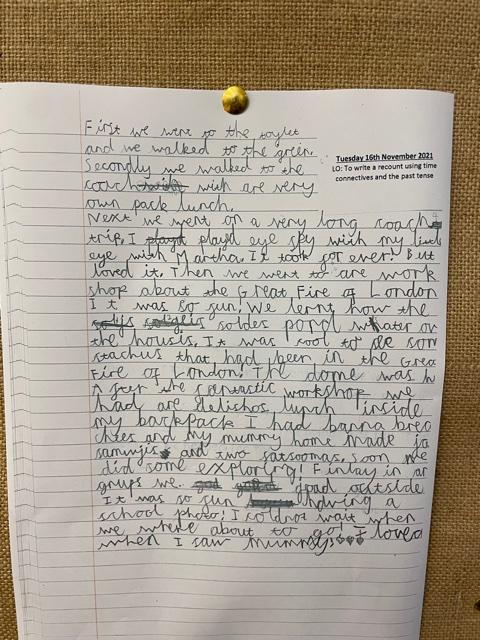 First we went to the toylet
and we walked to the green.
Secondly we walked to the
coach with are very
own pack lunch.
Tuesday 16th November 2021
LO: To write a recount using time
connectives and the past tense
Next we went on a very long coach
trip. I playd eye spy with my
eye with Martha. It took for ever! But I
loved it. Then we went to are work
shop about the Great Fire of London
It was so fun. We lernt how the
soldes pord whater on
the houses. It was cool to see som
stachus that had been in the Grea
Fire of London! The dome was
After the fantastic workshop we
had are delishos lunch inside
my backpack I had banna breo
and my mummy home made
samwjis and two satsoomas. Soon we
did some exploring! Finlay in ar
grups we outside
It was so fun having a
school photo! I coldnot wait when
we where about to go! I loved
when I saw Mummy